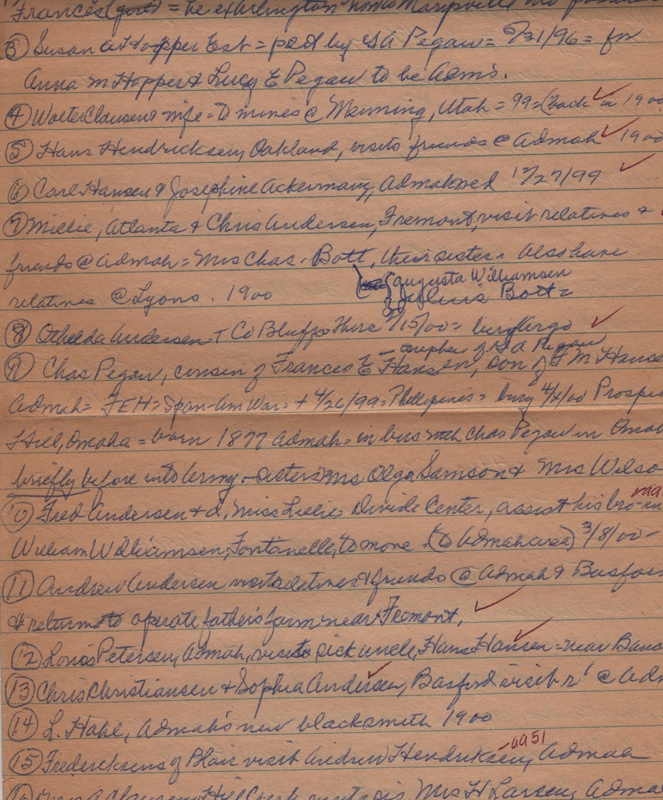 Frances
③ Susan A Hopper Est = petit by S A Pegau = 8/31/96 = for
Anna M Hopper & Lucy E Pegau to be Adm's.
④ Walter Clausen & wife = to mines @ Utah = 99 = (back in 1900
⑤ Hans Hendricksen, Oakland, visits friends @ Admah 1900
⑥ Carl Hansen & Josephine Ackermann, Admah wed 12/27/99
⑦ Millie, Atlanta & Chris Andersen, Fremont, visit relatives &
friends @ Admah = Mrs Chas. Bott, their sister. Also have
Augusta Williamsen
relatives @ Lyons. 1900 Julius Bott =
⑧ Andersen + Co Bluffs there 5/15/00 =
nephew of S A Pegau
⑨ Chas Pegau, cousin of Frances E Hansen, son of F M Hanse
Admah = FEH = Span-Am War = + 4/26/99 = Phillipines = bury 4/4/00 Prospec
Hill, Omaha = born 1877 Admah = in bus with Chas Pegau in Omah
briefly before into Army = sisters Mrs Olga Samson & Mrs Wilso
⑩ Fred Andersen & d, Miss Lillie = Divide Center, assist his bro-in
William Williamsen, Fontanelle, to move (to Admah area) 3/8/00 -
⑪ Andrew Andersen visits relatives & friends @ Admah & Basfor
& returns to operate father's farm near Fremont.
⑫ Louis Petersen, Admah, visits sick uncle, Hans Hansen = near Banc
⑬ Chris Christiansen & Sophia Andersen, Basford visit r' @ Adm
⑭ L. Hahl, Admah's new blacksmith 1900
aa51
⑮ Fredericksens of Blair visit Andrew Hendricksen, Admah
Clausen Hill Creek visits sis Mrs H Larsen, Adma